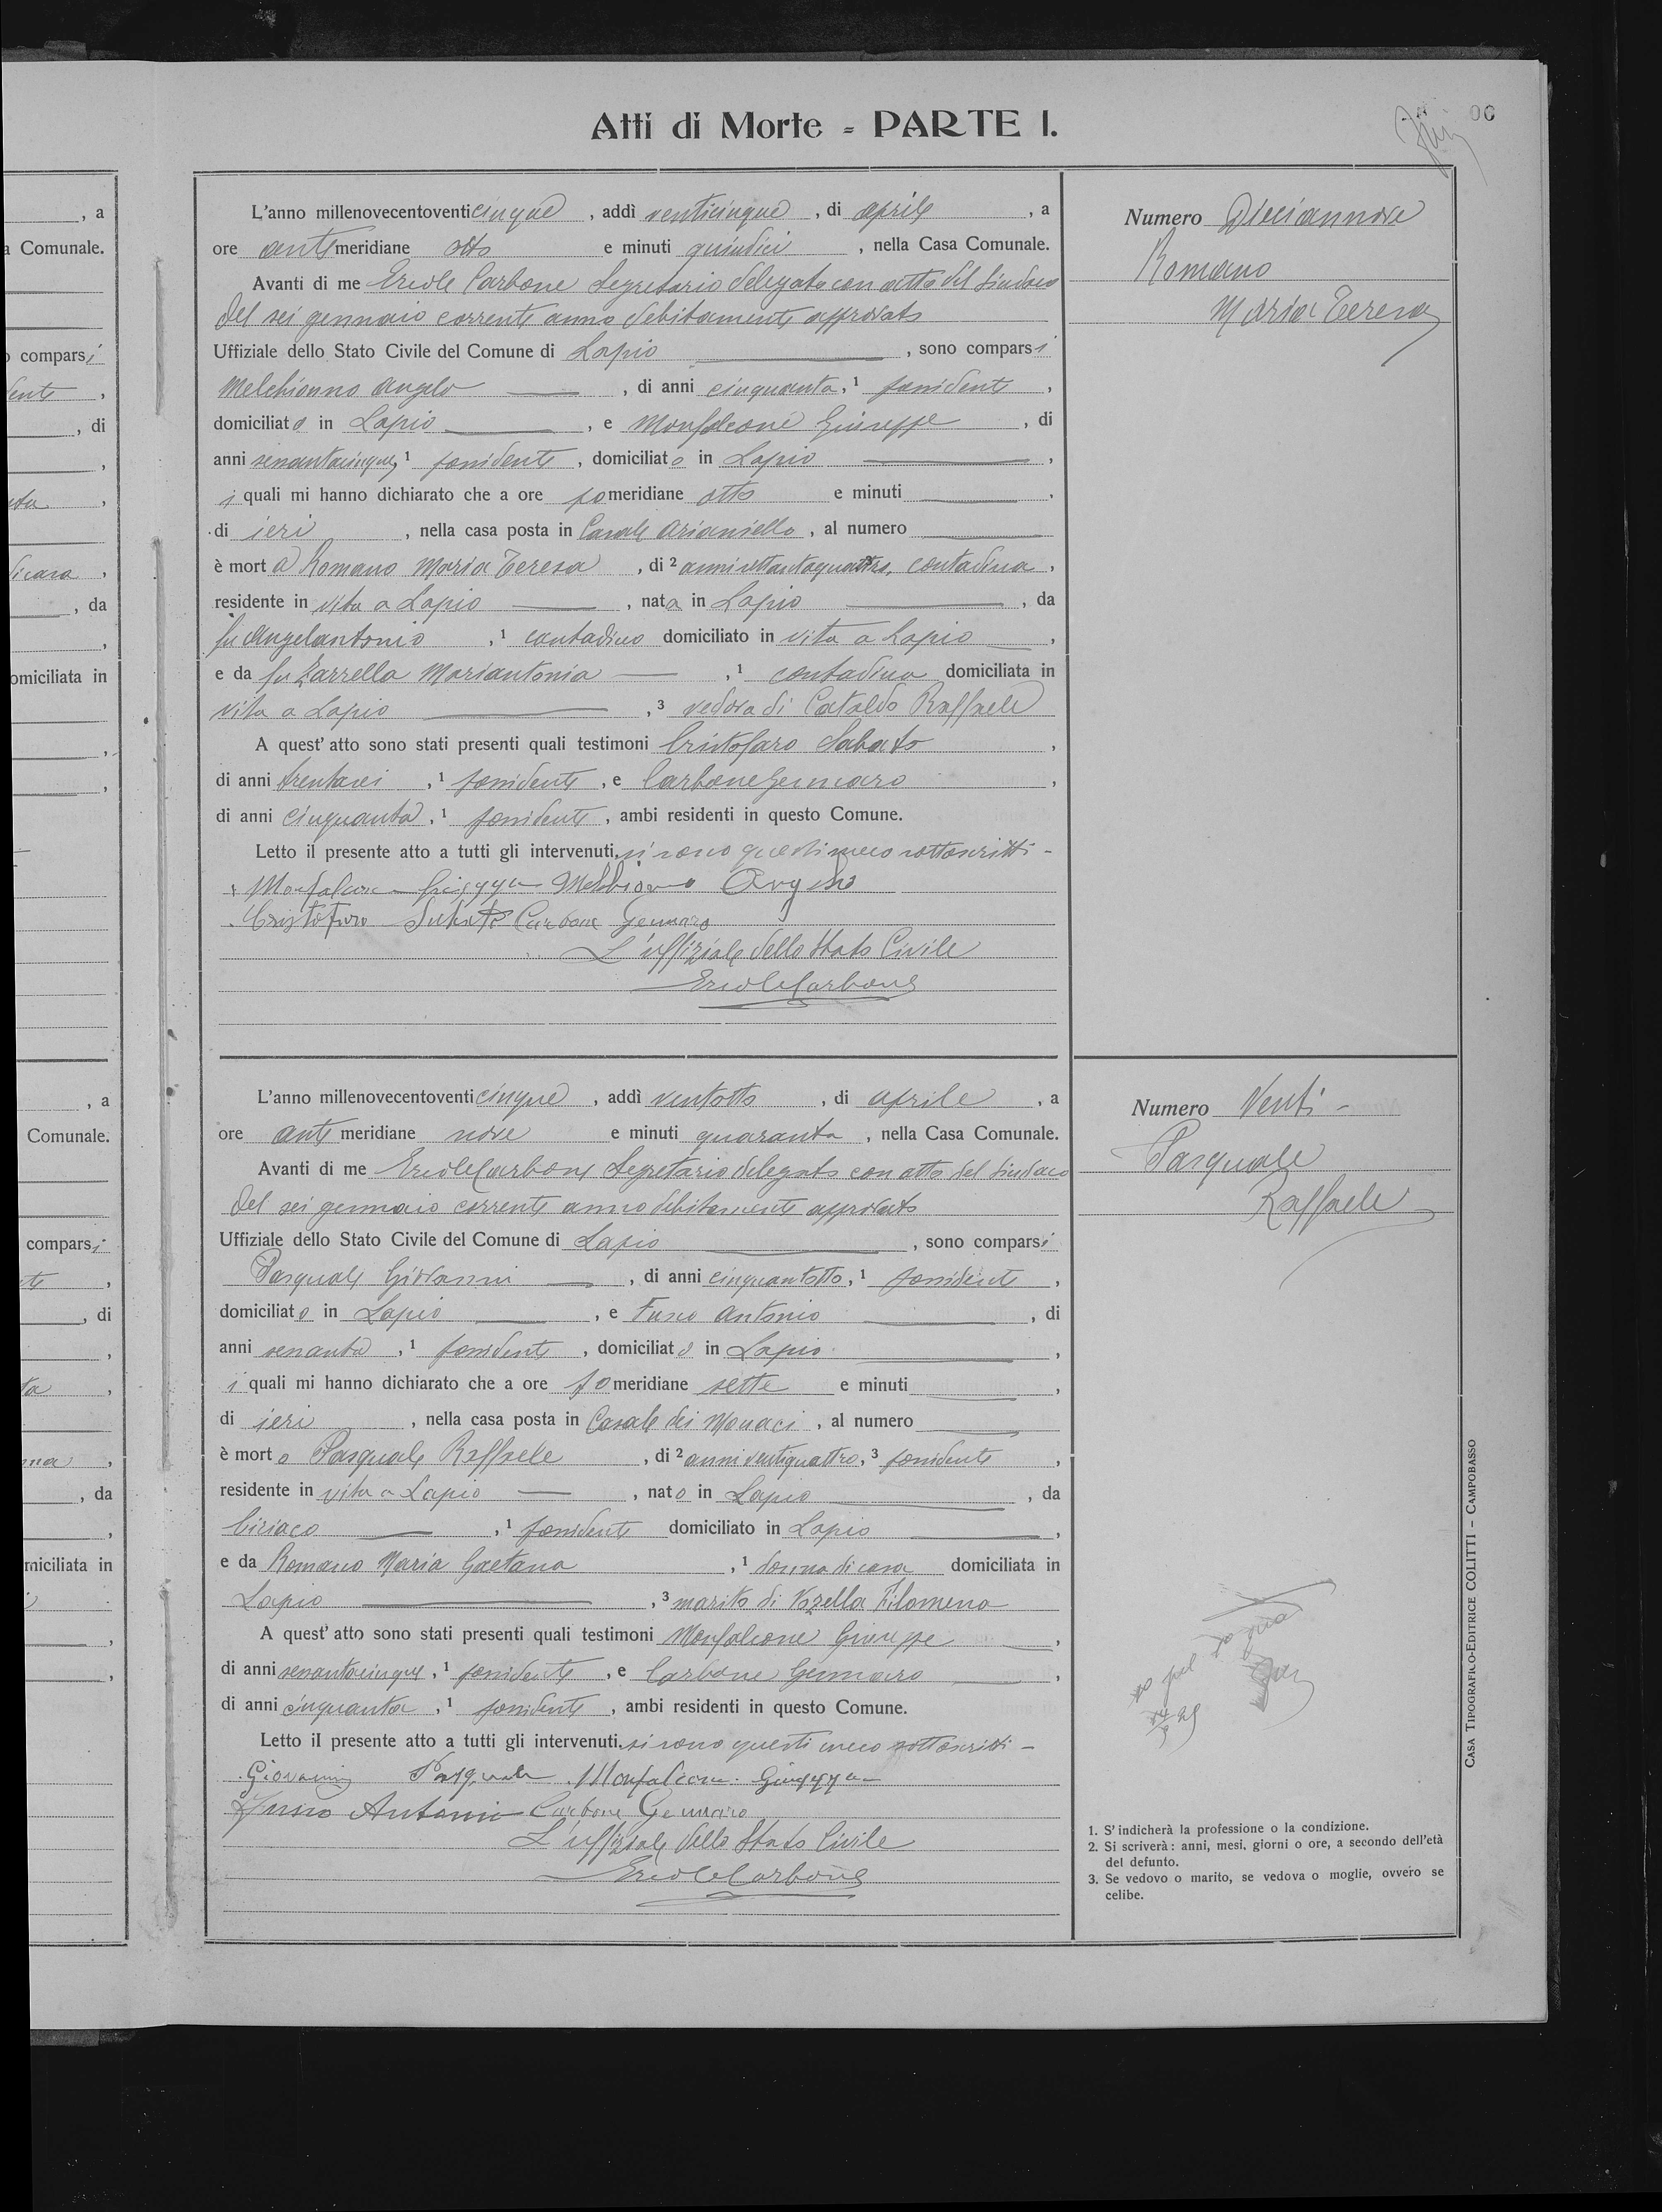 Atti di Morte - PARTE I.
00
L'anno millenovecentoventicinque, addì venticinque, di aprile, a
ore antimeridiane otto e minuti quindici, nella Casa Comunale.
Avanti di me Ercole Carbone Segretario delegato con atto del Sindaco
del sei gennaio corrente anno debitamente approvato
Uffiziale dello Stato Civile del Comune di Lapio, sono comparsi
Melchionno Angelo, di anni cinquanta,1 possidente,
domiciliato in Lapio, e Monfalcone Giuseppe, di
anni sessantacinque,1 possidente, domiciliato in Lapio,
i quali mi hanno dichiarato che a ore pomeridiane otto e minuti ,
di ieri, nella casa posta in Casale Arianiello, al numero
è morta Romano Maria Teresa, di 2 anni settantaquattro, contadina,
residente in vita a Lapio, nata in Lapio, da
fu Angelantonio,1 contadino domiciliato in vita a Lapio,
e da fu Zarrella Mariantonia,1 contadina domiciliata in
vita a Lapio,3 vedova di Cataldo Raffaele
A quest'atto sono stati presenti quali testimoni Cristofaro Sabato,
di anni trentasei,1 possidente, e Carbone Gennaro,
di anni cinquanta,1 possidente, ambi residenti in questo Comune.
Letto il presente atto a tutti gli intervenuti, si sono questi meco sottoscritti -
Monfalcone Giuseppe Melchionno Angelo
Cristofaro Sabato Carbone Gennaro
L'uffiziale dello Stato Civile
Ercole Carbone
Numero Diciannove
Romano
Maria Teresa
L'anno millenovecentoventicinque, addì ventotto, di aprile, a
ore antimeridiane nove e minuti quaranta, nella Casa Comunale.
Avanti di me Ercole Carbone Segretario delegato con atto del Sindaco
del sei gennaio corrente anno debitamente approvato
Uffiziale dello Stato Civile del Comune di Lapio, sono comparsi
Pasquale Giovanni, di anni cinquantotto,1 possidente,
domiciliato in Lapio, e Fusco Antonio, di
anni sessanta,1 possidente, domiciliato in Lapio,
i quali mi hanno dichiarato che a ore pomeridiane sette e minuti ,
di ieri, nella casa posta in Casale dei Monaci, al numero
è morto Pasquale Raffaele, di 2 anni ventiquattro,3 possidente,
residente in vita a Lapio, nato in Lapio, da
Ciriaco,1 possidente domiciliato in Lapio,
e da Romano Maria Gaetana,1 donna di casa domiciliata in
Lapio,3 marito di Vozella Filomena
A quest'atto sono stati presenti quali testimoni Monfalcone Giuseppe,
di anni sessantacinque,1 possidente, e Carbone Gennaro,
di anni cinquanta,1 possidente, ambi residenti in questo Comune.
Letto il presente atto a tutti gli intervenuti, si sono questi meco sottoscritti -
Giovanni Pasquale Monfalcone Giuseppe
Fusco Antonio Carbone Gennaro
L'uffiziale dello Stato Civile
Ercole Carbone
Numero Venti -
Pasquale
Raffaele
1. S'indicherà la professione o la condizione.
2. Si scriverà: anni, mesi, giorni o ore, a secondo dell'età
del defunto.
3. Se vedovo o marito, se vedova o moglie, ovvero se
celibe.
CASA TIPOGRAFICO-EDITRICE COLITTI - CAMPOBASSO
, a
a Comunale.
comparsi
, di
, da
omiciliata in
, a
Comunale.
comparsi
, di
, da
miciliata in